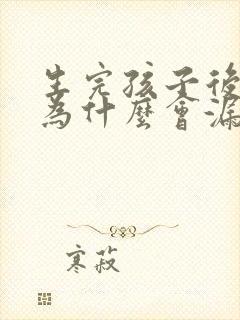 生完孩子後
為什麼會漏
寒菽